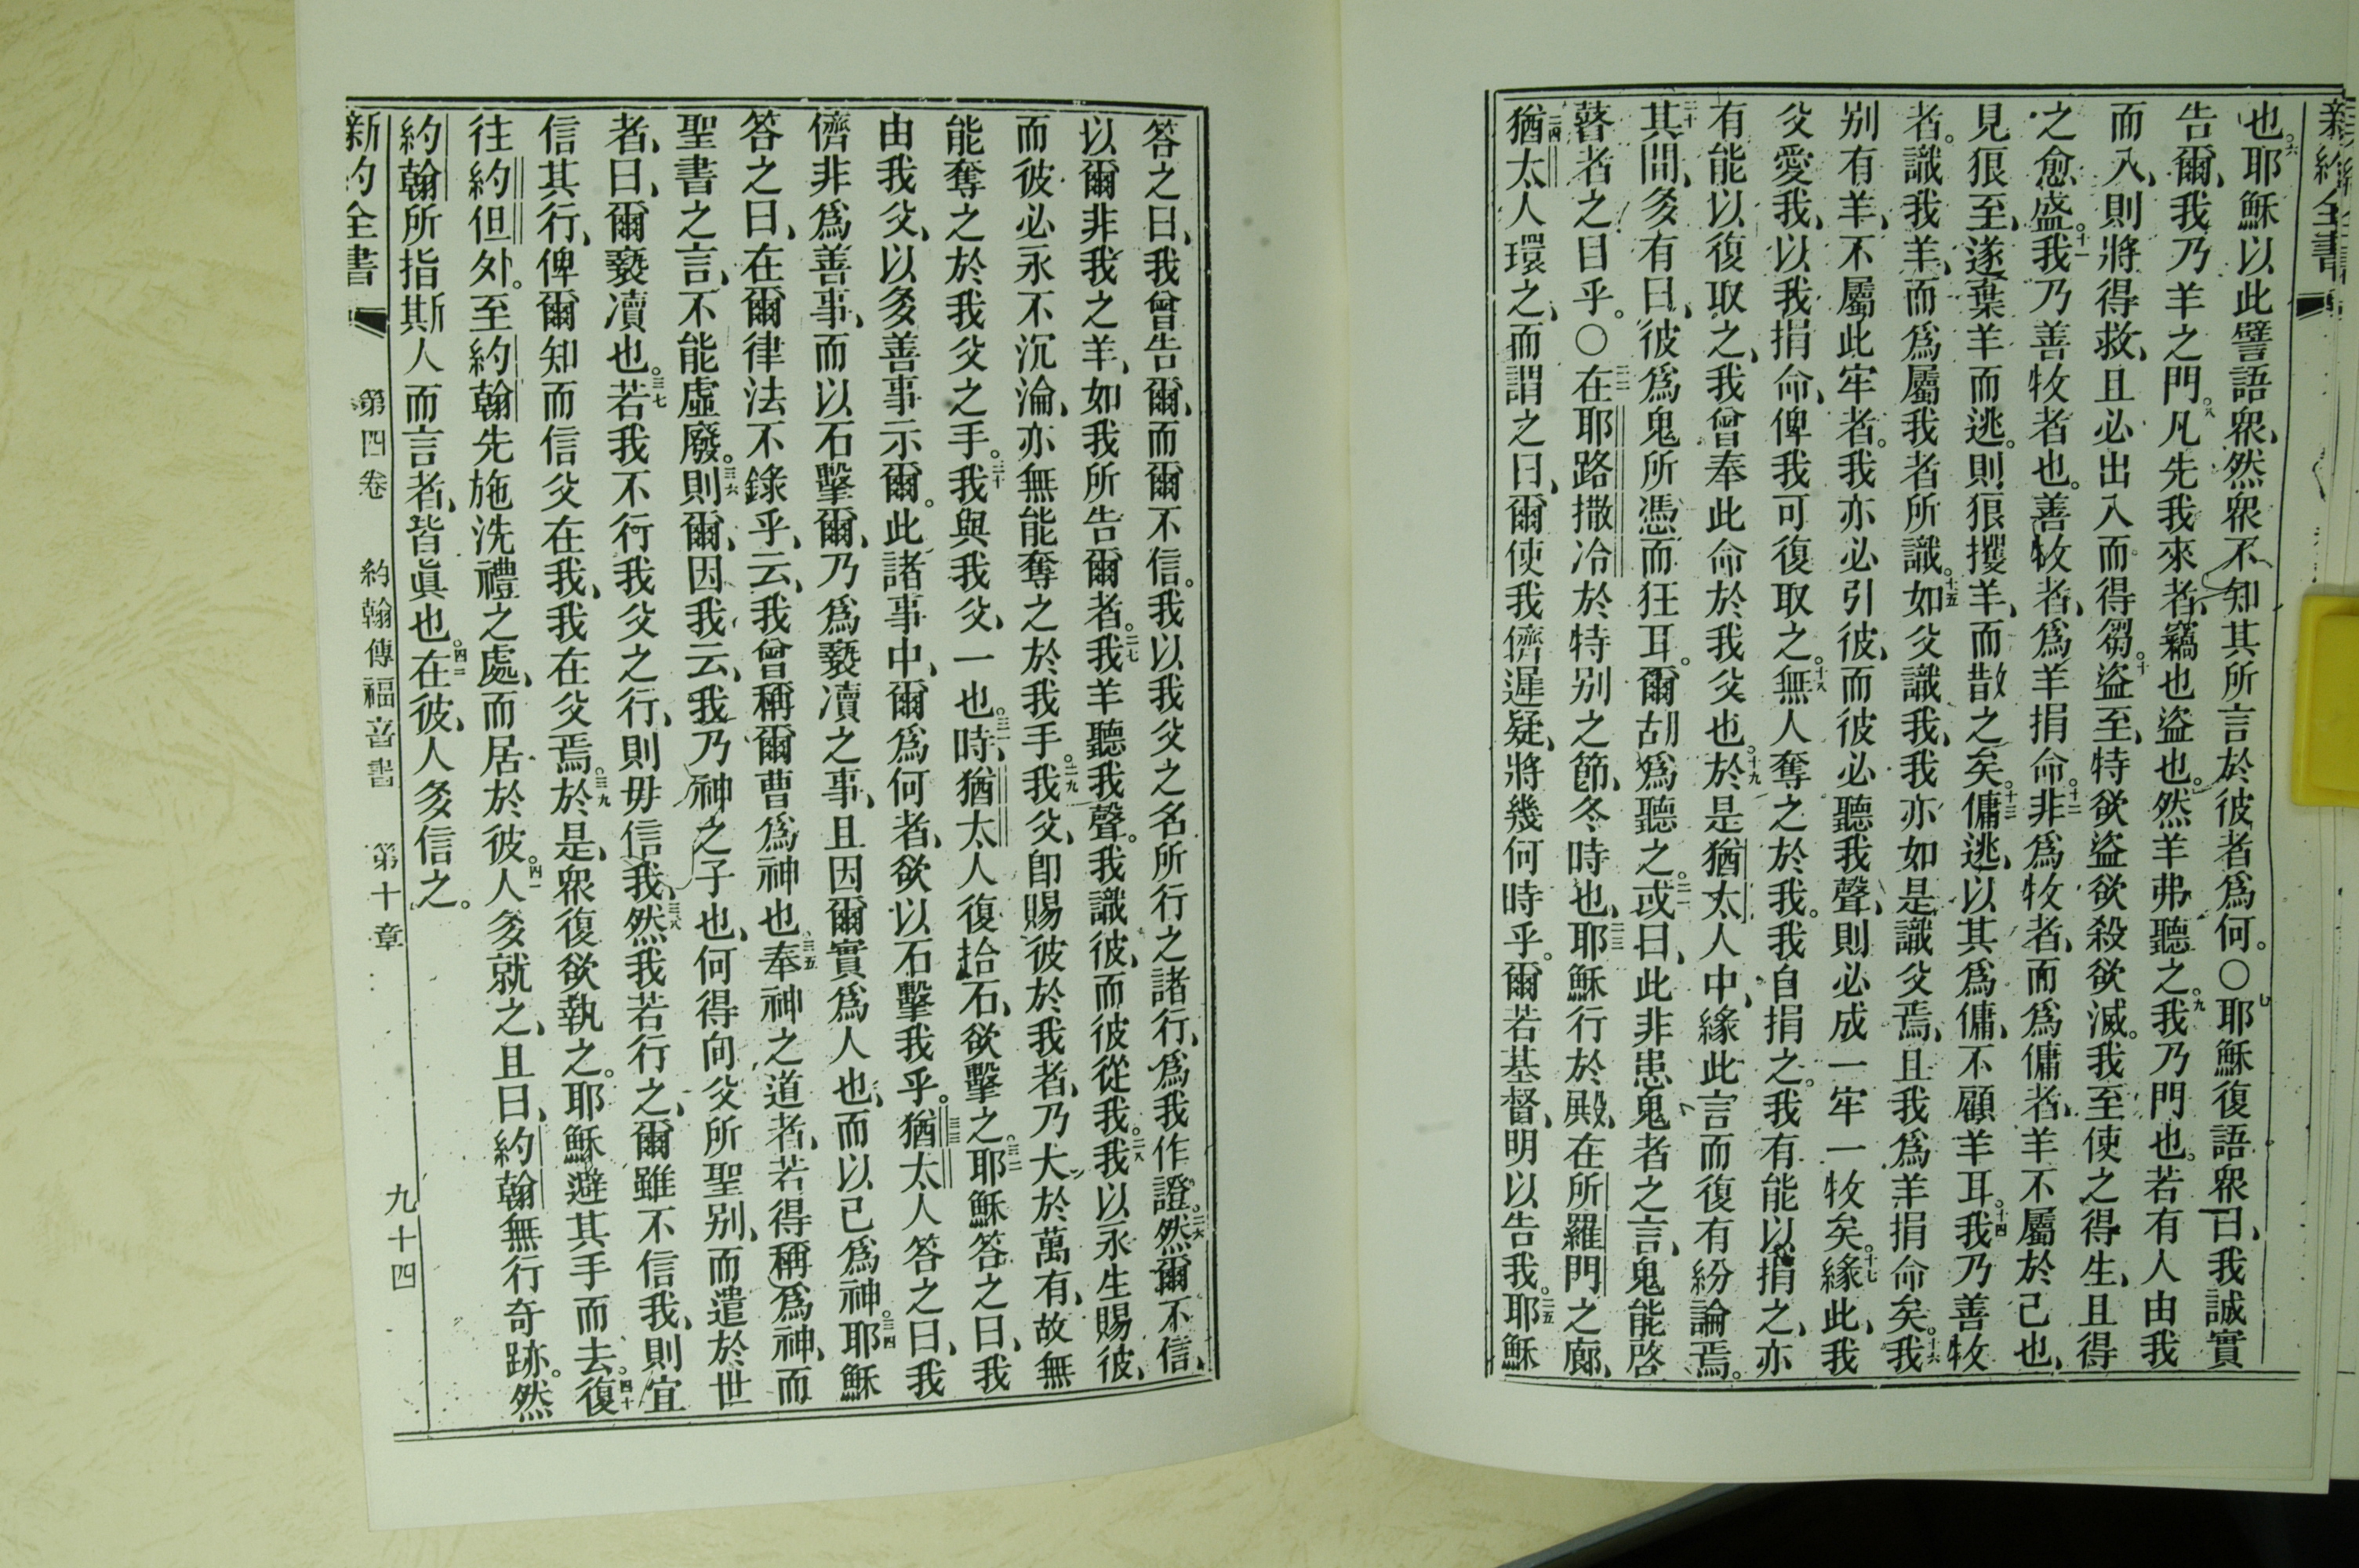 新約全書
也。六耶穌以此譬語衆、然衆不知其所言於彼者爲何。〇七耶穌復語衆曰、我誠實
告爾、我乃羊之門。八凡先我來者、竊也盜也。然羊弗聽之。九我乃門也。若有人由我
而入、則將得救、且必出入而得芻。十盜至、特欲盜欲殺欲滅。我至使之得生、且得
之愈盛。十一我乃善牧者也。善牧者、爲羊捐命。十二非爲牧者、而爲傭者、羊不屬於己也、
見狼至、遂棄羊而逃。則狼攫羊、而散之矣。十三傭逃、以其爲傭、不顧羊耳。十四我乃善牧
者。識我羊、而爲屬我者所識。十五如父識我、我亦如是識父焉、且我爲羊捐命矣。十六我
別有羊、不屬此牢者。我亦必引彼、而彼必聽我聲、則必成一牢一牧矣。十七緣此、我
父愛我、以我捐命、俾我可復取之。十八無人奪之於我。我自捐之。我有能以捐之、亦
有能以復取之、我曾奉此命於我父也。十九於是猶太人中、緣此言而復有紛論焉。
二十其間、多有曰、彼爲鬼所憑而狂耳。爾胡爲聽之。二一或曰、此非患鬼者之言、鬼能啓
瞽者之目乎。〇二二在耶路撒冷於特別之節、冬時也、二三耶穌行於殿、在所羅門之廊、
二四猶太人環之、而謂之曰、爾使我儕遲疑、將幾何時乎。爾若基督、明以告我。二五耶穌
答之曰、我曾告爾、而爾不信。我以我父之名所行之諸行、爲我作證。二六然爾不信、
以爾非我之羊、如我所告爾者。二七我羊聽我聲。我識彼、而彼從我。二八我以永生賜彼、
而彼必永不沉淪、亦無能奪之於我手。二九我父、卽賜彼於我者、乃大於萬有、故無
能奪之於我父之手。三十我與我父、一也。三一時、猶太人復拾石、欲擊之。三二耶穌答之曰、我
由我父、以多善事示爾。此諸事中、爾爲何者、欲以石擊我乎。三三猶太人答之曰、我
儕非爲善事、而以石擊爾、乃爲褻瀆之事、且因爾實爲人也、而以己爲神。三四耶穌
答之曰、在爾律法不錄乎、云、我曾稱爾曹爲神也三五奉神之道者、若得稱爲神、而
聖書之言、不能虛廢。三六則爾、因我云、我乃神之子也、何得向父所聖別、而遣於世
者、曰、爾褻瀆也。三七若我不行我父之行、則毋信我、三八然我若行之、爾雖不信我、則宜
信其行、俾爾知而信父在我、我在父焉。三九於是、衆復欲執之。耶穌避其手而去。四十復
往約但外。至約翰先施洗禮之處、而居於彼。四一人多就之、且曰、約翰無行奇跡。然
約翰所指斯人而言者、皆眞也。四二在彼、人多信之。
新約全書 第四卷 約翰傳福音書 第十章 九十四